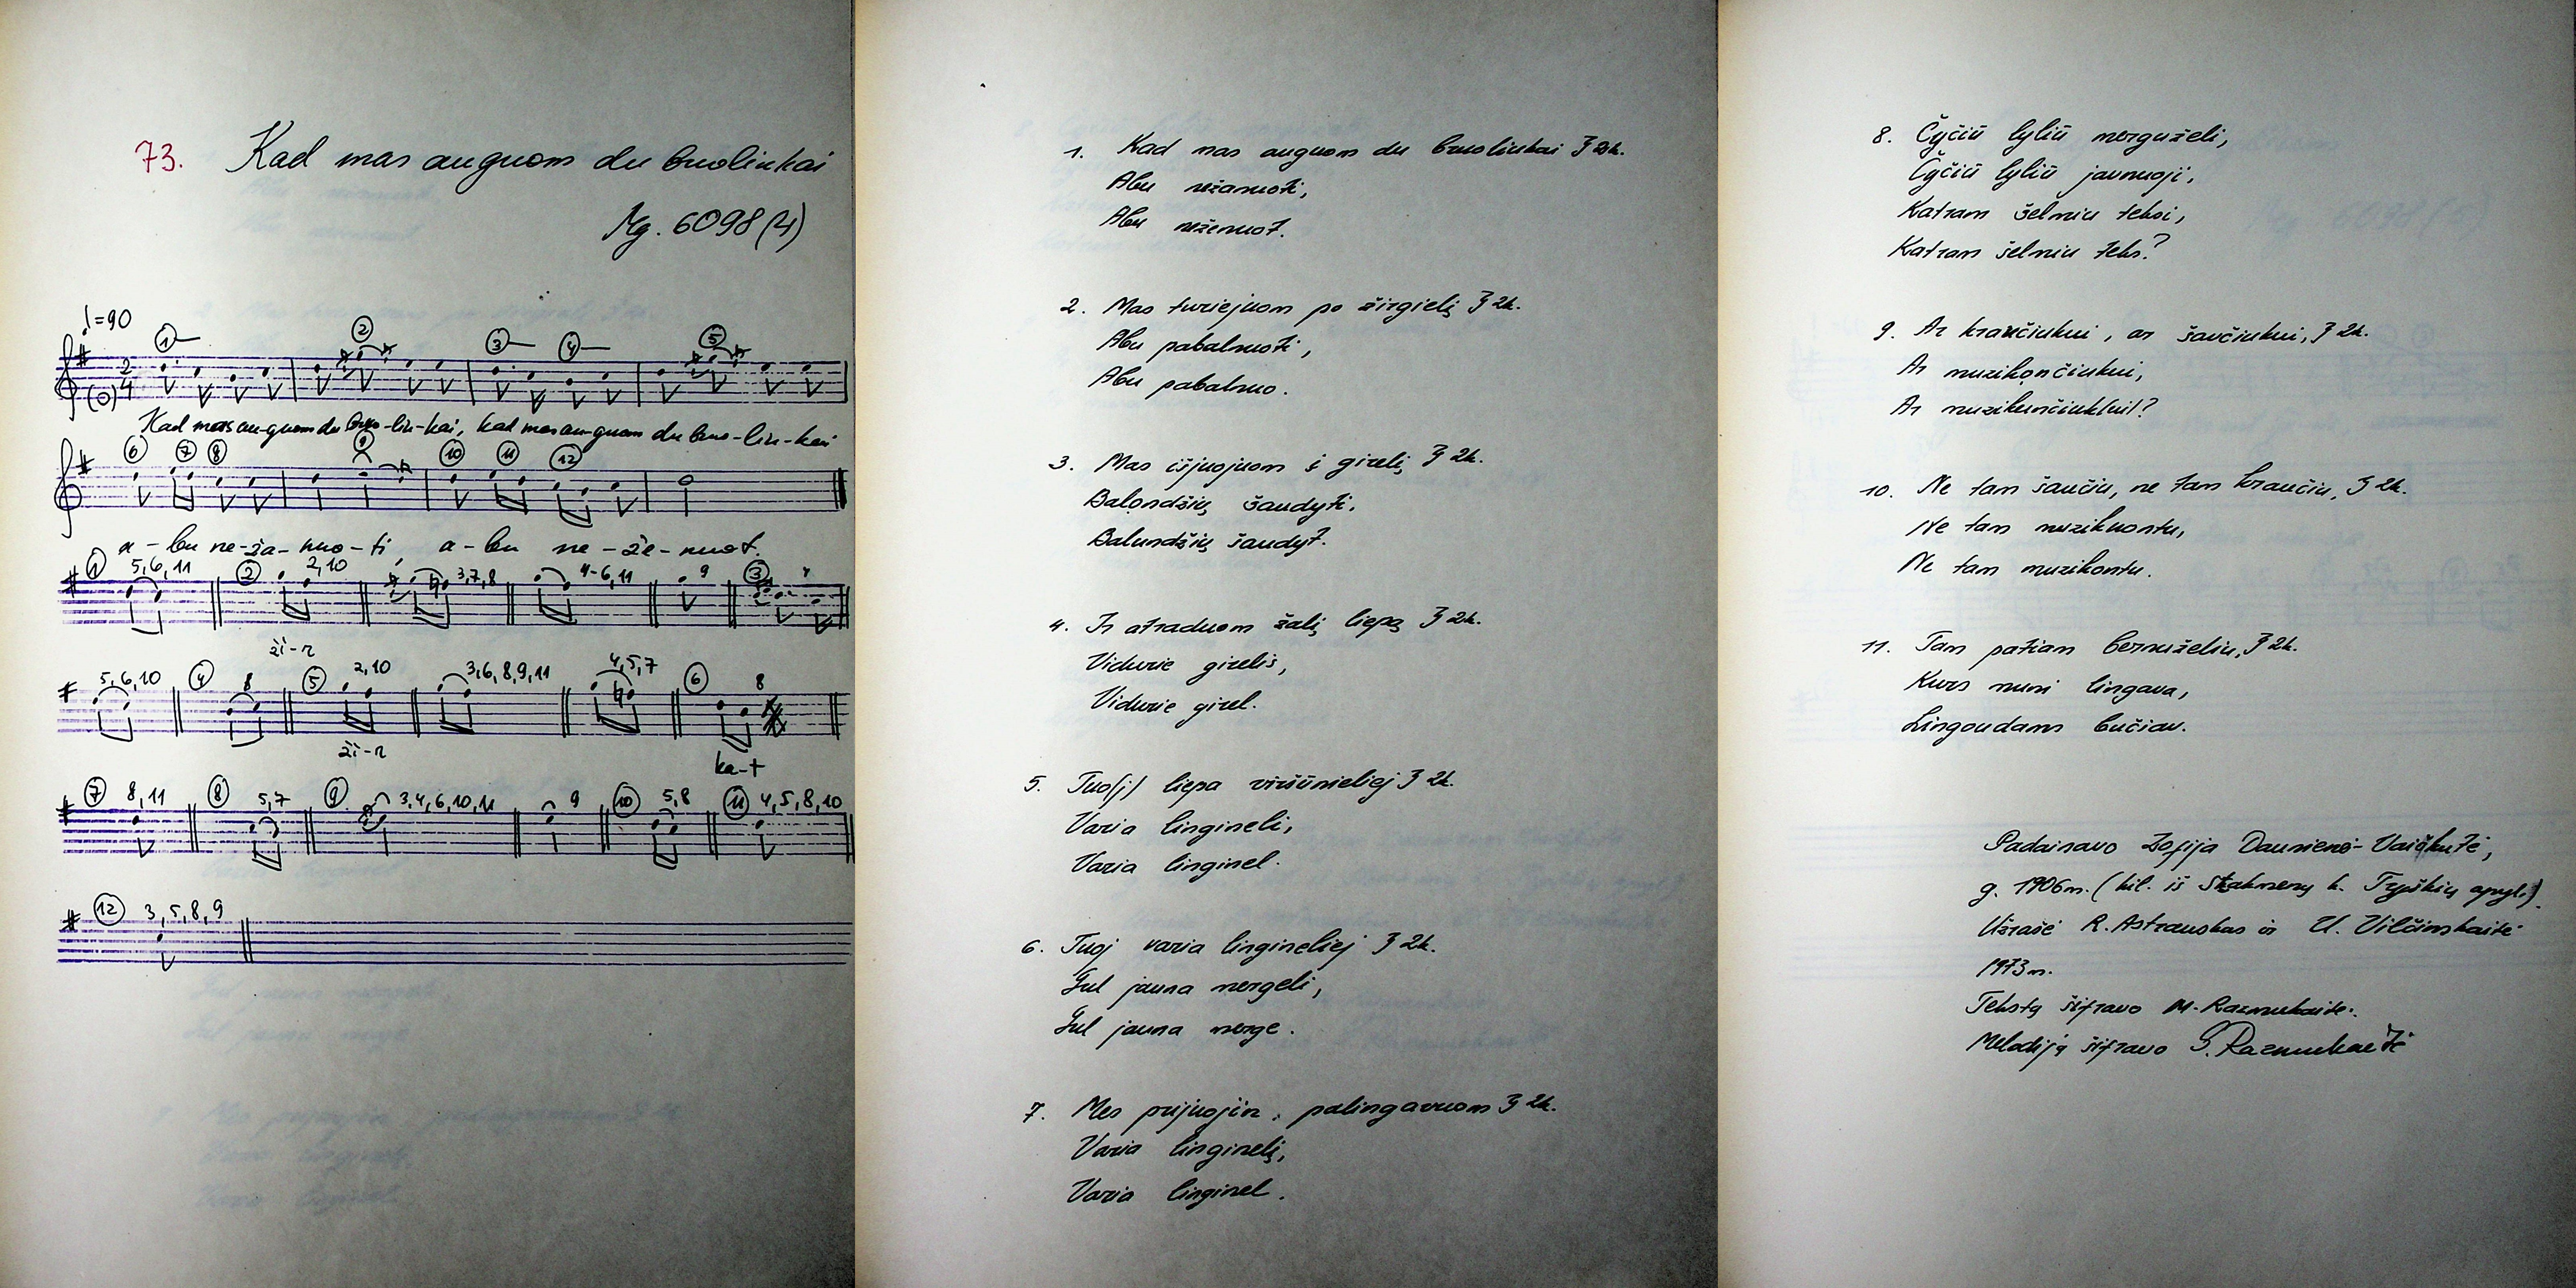 73. Kad mas auguom du bruoliukai
Mg. 6098(4)
♩=90
① ② ③ ④ ⑤
2/4
Kad mas au-guom du bruo-liu-kai, kad mas au-guom du bruo-liu-kai
⑥ ⑦ ⑧ ⑨ ⑩ ⑪ ⑫
a-bu ne-ža-nuo-ti, a-bu ne-že-nuot.
① 5,6,11 ② 2,10 3,7,8 4-6,11 9 ③
ži-r
5,6,10 ④ 8 ⑤ 2,10 3,6,8,9,11 4,5,7 ⑥ 8
ži-r ka-t
⑦ 8,11 ⑧ 5,7 ⑨ 3,4,6,10,11 9 ⑩ 5,8 ⑪ 4,5,8,10
⑫ 3,5,8,9
1. Kad mas auguom du bruoliukai } 2k.
Abu nežanuoti,
Abu neženuot.
2. Mas turiejuom po žirgielį } 2k.
Abu pabalnuoti,
Abu pabalnuo.
3. Mas išjuojuom į girelį } 2k.
Balondžių šaudyti,
Balundžių šaudyt.
4. Ir atraduom žalį liepą } 2k.
Vidurie girelis,
Vidurie girel.
5. Tuo(j) liepa viršūnieliej } 2k.
Varia lingineli,
Varia linginel.
6. Tuoj varia lingineliej } 2k.
Gul jauna mergeli,
Gul jauna merge.
7. Mes prijuojin, palingavuom } 2k.
Varia linginelį,
Varia linginel.
8. Čyčiū lyliū merguželi,
Čyčiū lyliū jaunuoji,
Katram šelmiu teksi,
Katram šelmiu teks?
9. Ar kraučiukui, ar šaučiukui, } 2k.
Ar muzikončiukui,
Ar muzikunčiuk(ui)?
10. Ne tam šaučiu, ne tam kraučiu, } 2k.
Ne tam muzikuontu,
Ne tam muzikontu.
11. Tam patiam bernuželiu, } 2k.
Kurs muni lingava,
Lingoudams bučiav.
Padainavo Zofija Daunienė-Vaiškutė,
g. 1906m. (kil. iš Skabmenų k. Tryškių apyl.)
Užrašė R. Astrauskas ir U. Vilčinskaitė
1973m.
Tekstą šifravo M. Razmukaitė.
Melodiją šifravo S. Razmukaitė